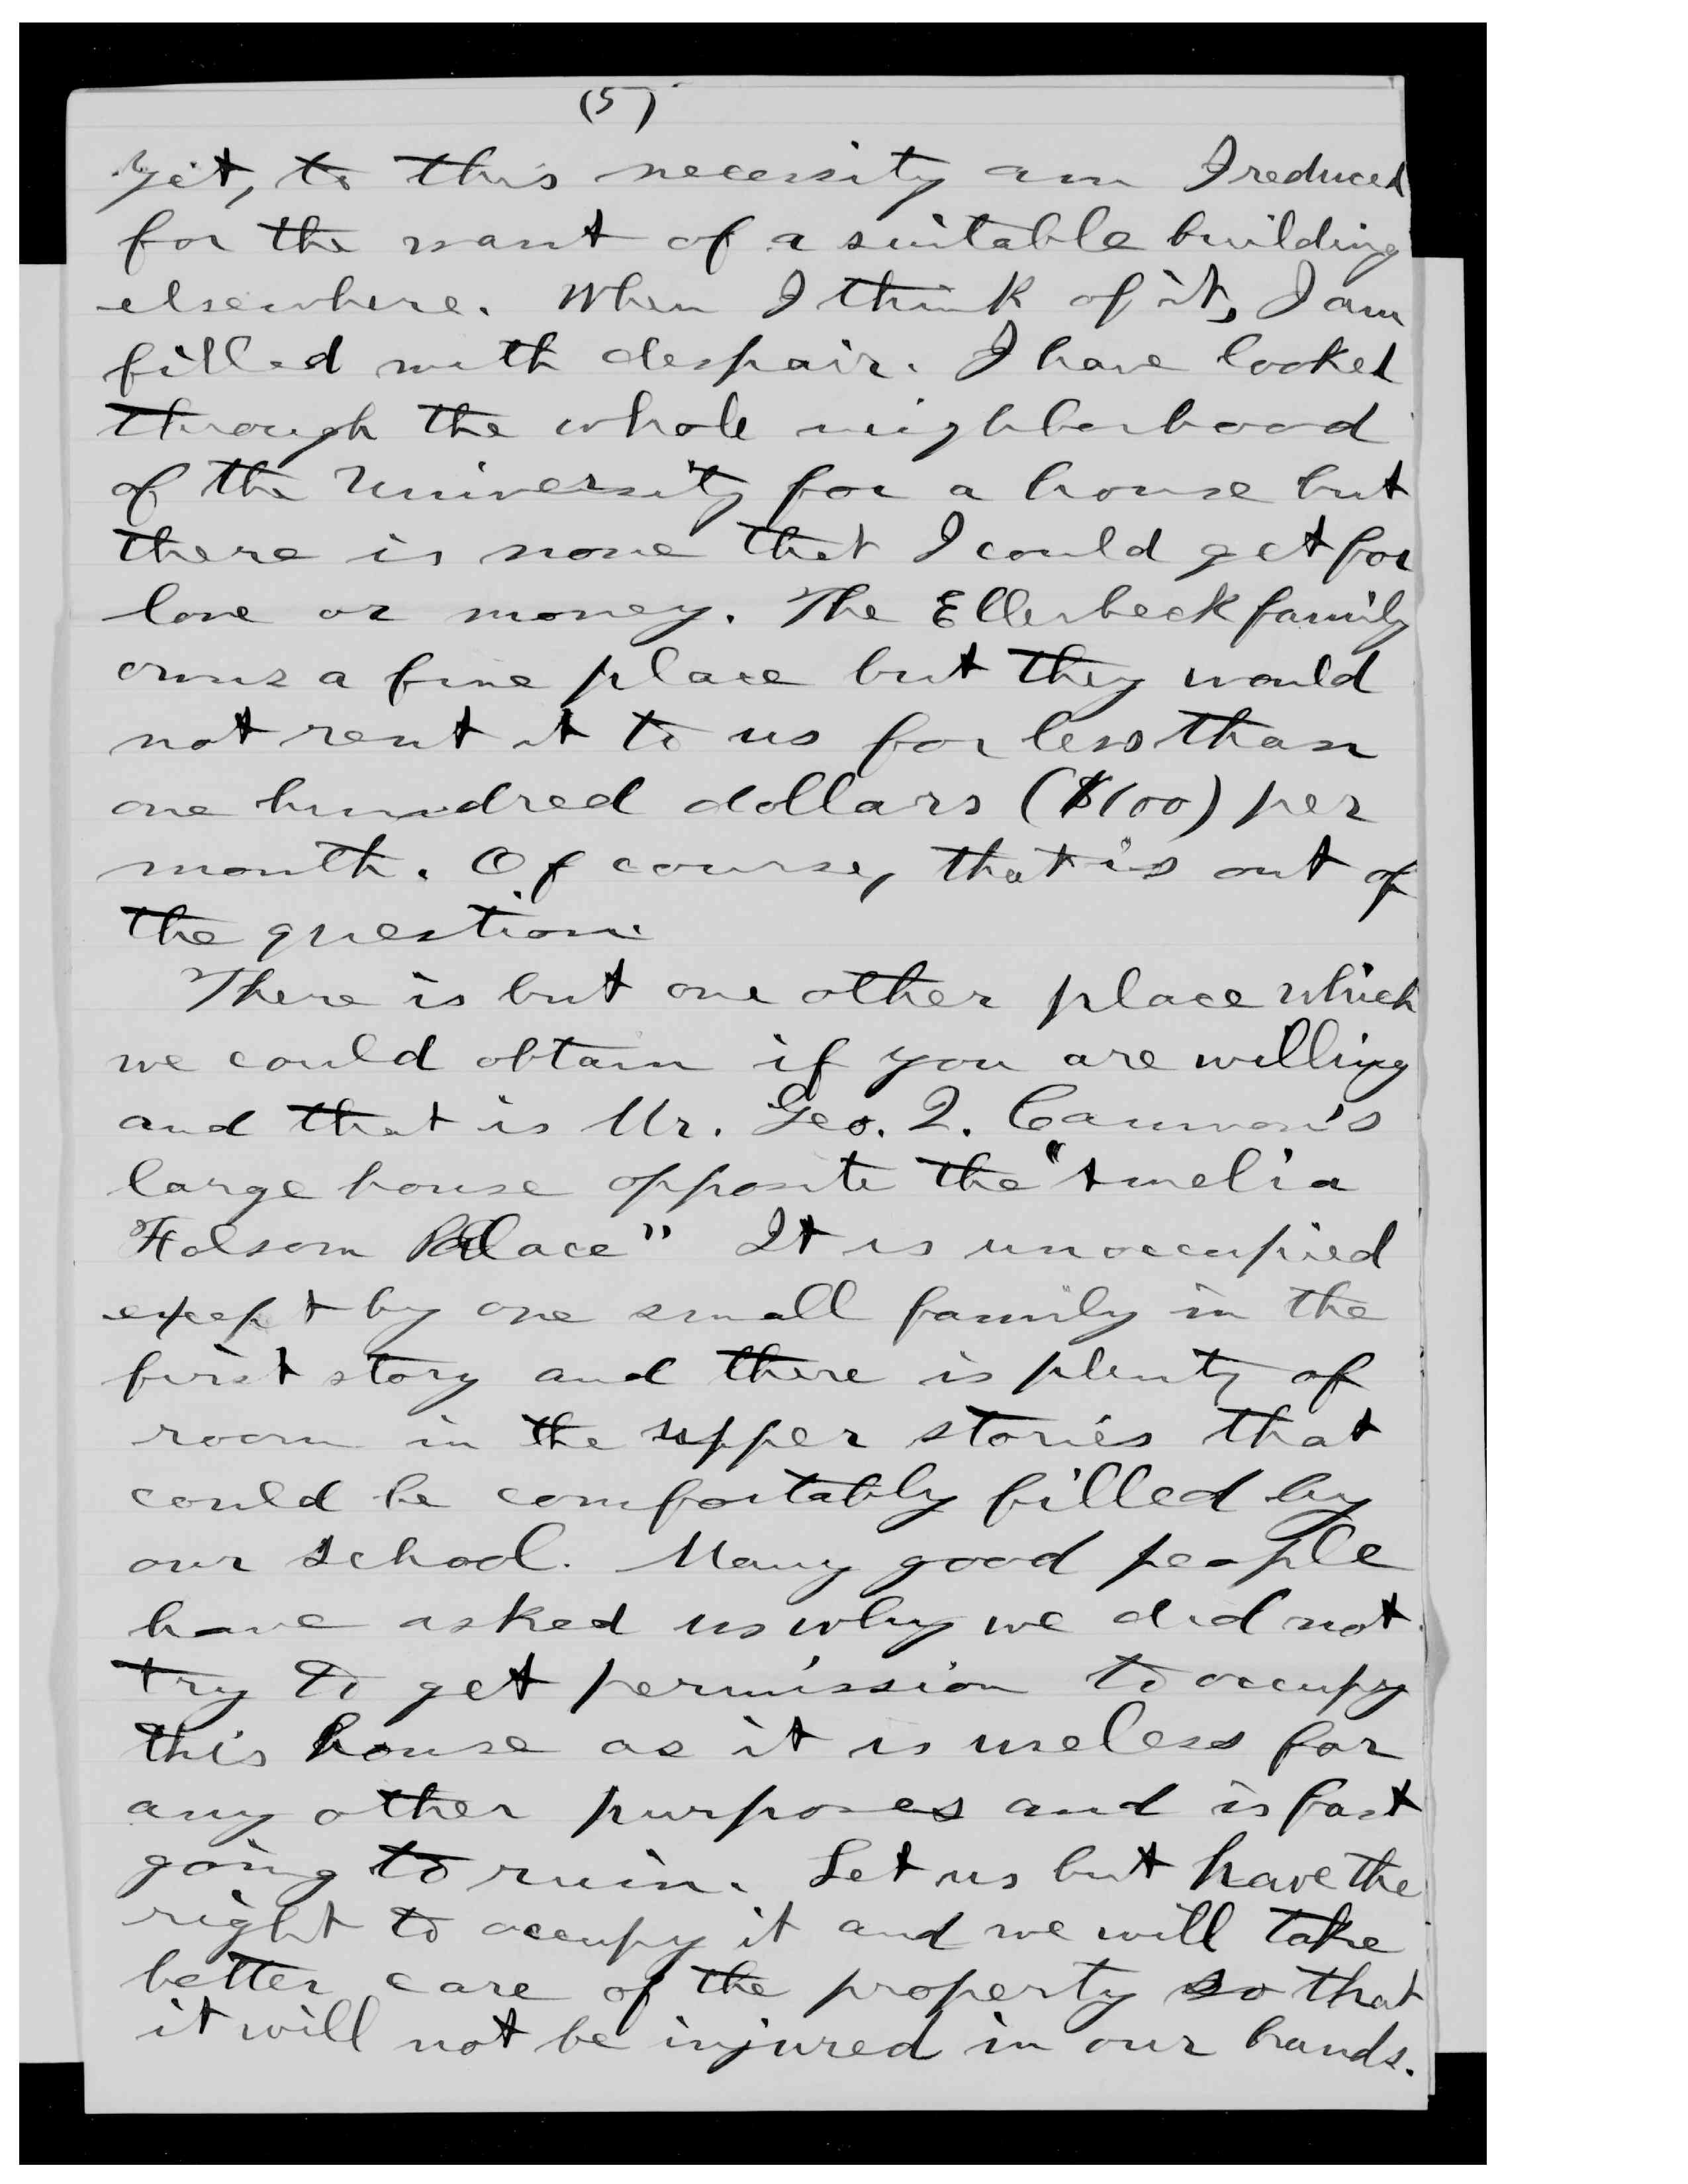 (5)
Yet, to this necessity am I reduced
for the want of a suitable building
elsewhere. When I think of it, I am
filled with despair. I have looked
through the whole neighborhood
of the University for a house but
there is none that I could get for
love or money. The Ellerbeck family
owns a fine place but they would
not rent it to us for less than
one hundred dollars ($100) per
month. Of course, that is out of
the question.
There is but one other place which
we could obtain if you are willing
and that is Mr. Geo. Q. Cannon's
large house opposite the "Amelia
Folsom Palace" It is unoccupied
except by one small family in the
first story and there is plenty of
room in the upper stories that
could be comfortably filled by
our school. Many good people
have asked us why we did not
try to get permission to occupy
this house as it is useless for
any other purposes and is fast
going to ruin. Let us but have the
right to occupy it and we will take
better care of the property so that
it will not be injured in our hands.